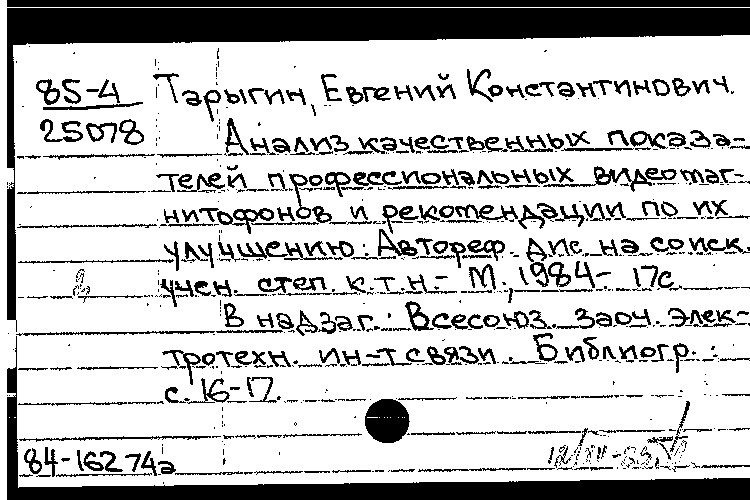 85-4 Тарыгин, Евгений Константинович.
25078
Анализ качественных показа-
телей профессиональных видеомаг-
нитофонов и рекомендации по их
улучшению: Автореф. дис. на соиск.
учен. степ. к.т.н.- М., 1984- 17с.
В надзаг.: Всесоюз. заоч. элек-
тротехн. ин-т связи. Библиогр.:
с. 16-17.
84-16274а